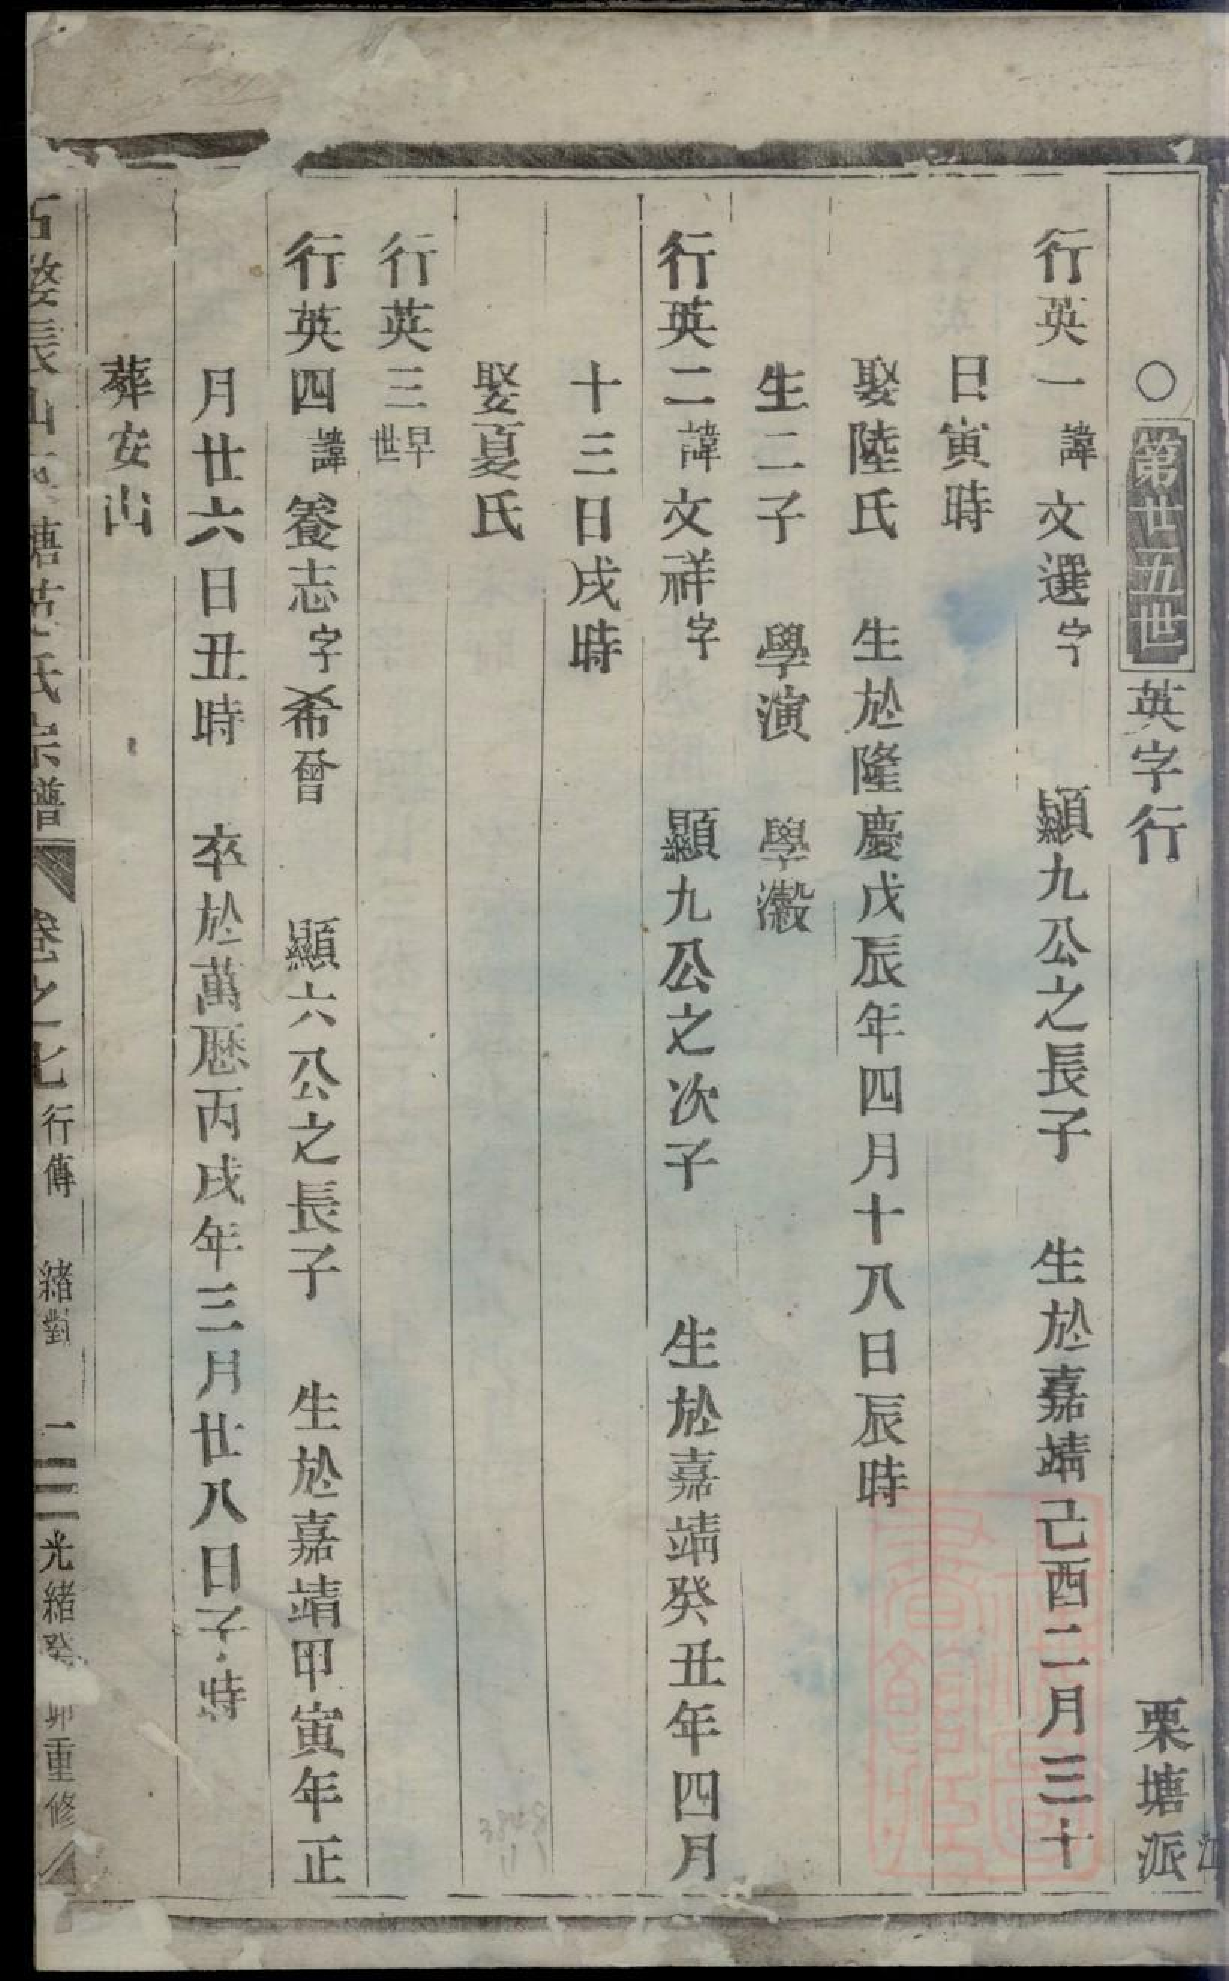 ○第廿五世英字行 栗塘派
行英一諱文選字 顯九公之長子 生於嘉靖己酉二月三十
日寅時
娶陸氏 生於隆慶戊辰年四月十八日辰時
生二子 學演 學瀔
行英二諱文祥字 顯九公之次子 生於嘉靖癸丑年四月
十三日戌時
娶夏氏
行英三早世
行英四諱養志字希曾 顯六公之長子 生於嘉靖甲寅年正
月廿六日丑時 卒於萬歷丙戌年三月廿八日子時
葬安山
塘 氏宗譜 卷之七 行傳 緒對 一 光緒癸卯重修